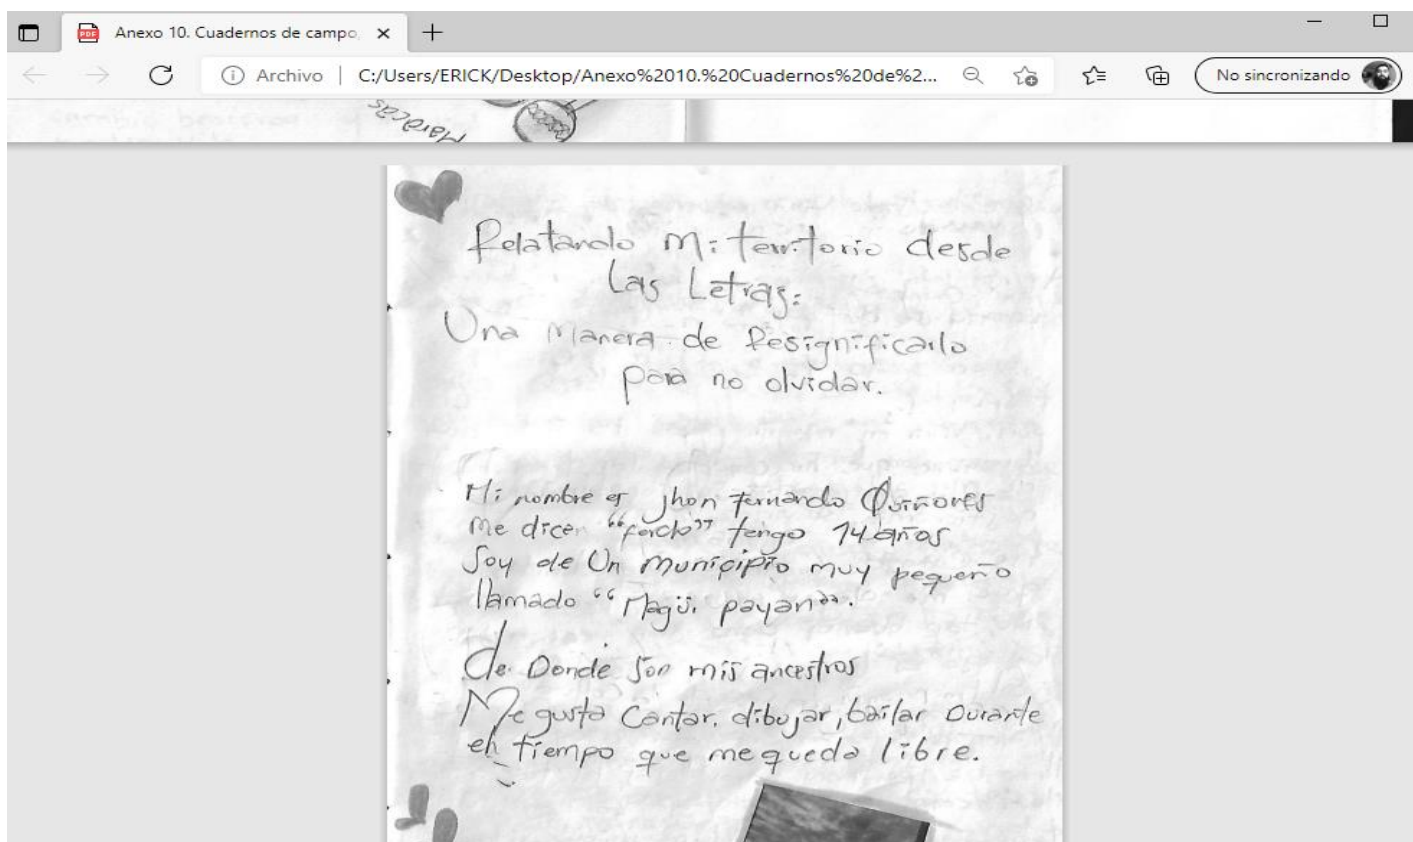 Anexo 10. Cuadernos de campo,
Archivo | C:/Users/ERICK/Desktop/Anexo%2010.%20Cuadernos%20de%2...
No sincronizando
Maracas
Relatando Mi territorio desde
Las Letras:
Una Manera de Resignificarlo
para no olvidar.
Mi nombre es Jhon Fernando Quiñones
Me dicen tengo 14 años
Soy de Un municipio muy pequeño
llamado “Magüi payan”.
de Donde son mis ancestros
Me gusta Cantar, dibujar, bailar Durante
el tiempo que me queda libre.